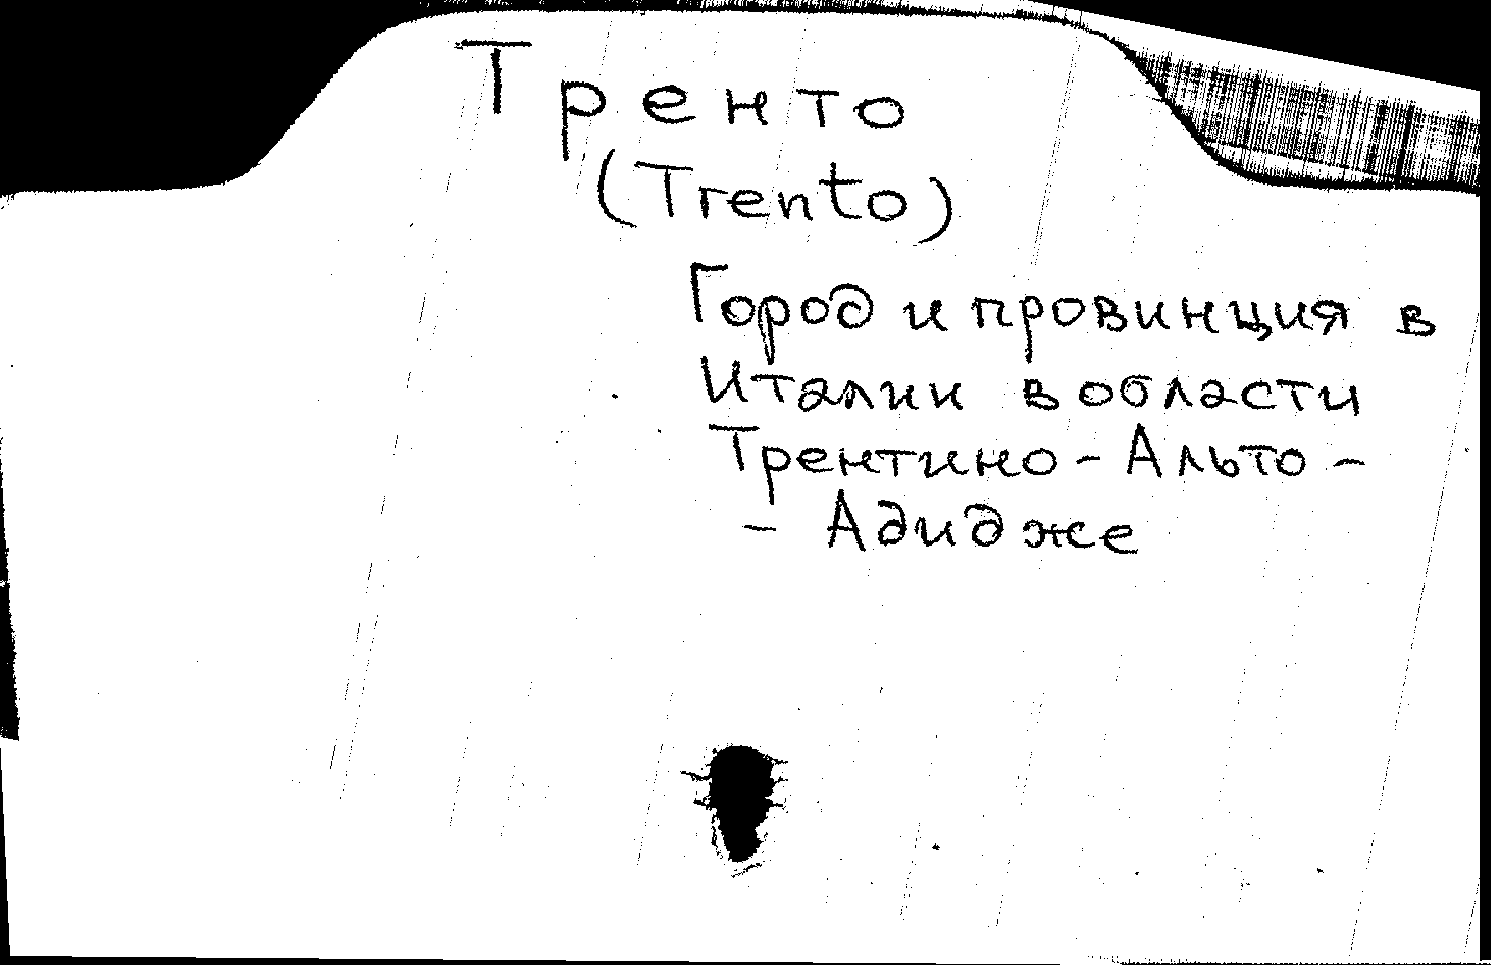 Тренто
(Trento)
Город и провинция в
Италии в области
Трентино - Альто -
- Адидже